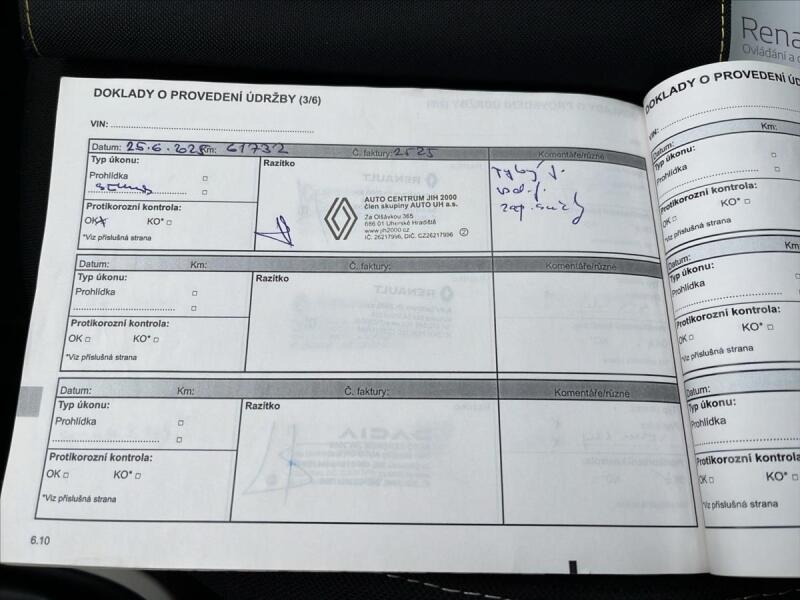 Rena
Ovládání a
DOKLADY O PROVEDENÍ ÚDRŽBY (3/6)
VIN:
Datum: 25.6. Km: 61732 Č. faktury: 2525 Komentáře/různé
Typ úkonu:
Prohlídka
Razítko
RENAULT
AUTO CENTRUM JIH 2000
člen skupiny AUTO UH a.s.
Za Olšávkou 365
686 01 Uherské Hradiště
www.jih2000.cz
IČ. 26217996, DIČ. CZ26217996 2
Protikorozní kontrola:
OK KO*
*Viz příslušná strana
Datum: Km: Č. faktury: Komentáře/různé
Typ úkonu:
Prohlídka
Razítko
Protikorozní kontrola:
OK KO*
*Viz příslušná strana
Datum: Km: Č. faktury: Komentáře/různé
Typ úkonu:
Prohlídka
Razítko
Protikorozní kontrola:
OK KO*
*Viz příslušná strana
6.10
DOKLADY O PROVEDENÍ
VIN:
Datum: Km:
Typ úkonu:
Prohlídka
Protikorozní kontrola:
OK KO*
*Viz příslušná strana
Datum: Km:
Typ úkonu:
Prohlídka
Protikorozní kontrola:
OK KO*
*Viz příslušná strana
Datum:
Typ úkonu:
Prohlídka
Protikorozní kontrola:
OK KO*
*Viz příslušná strana